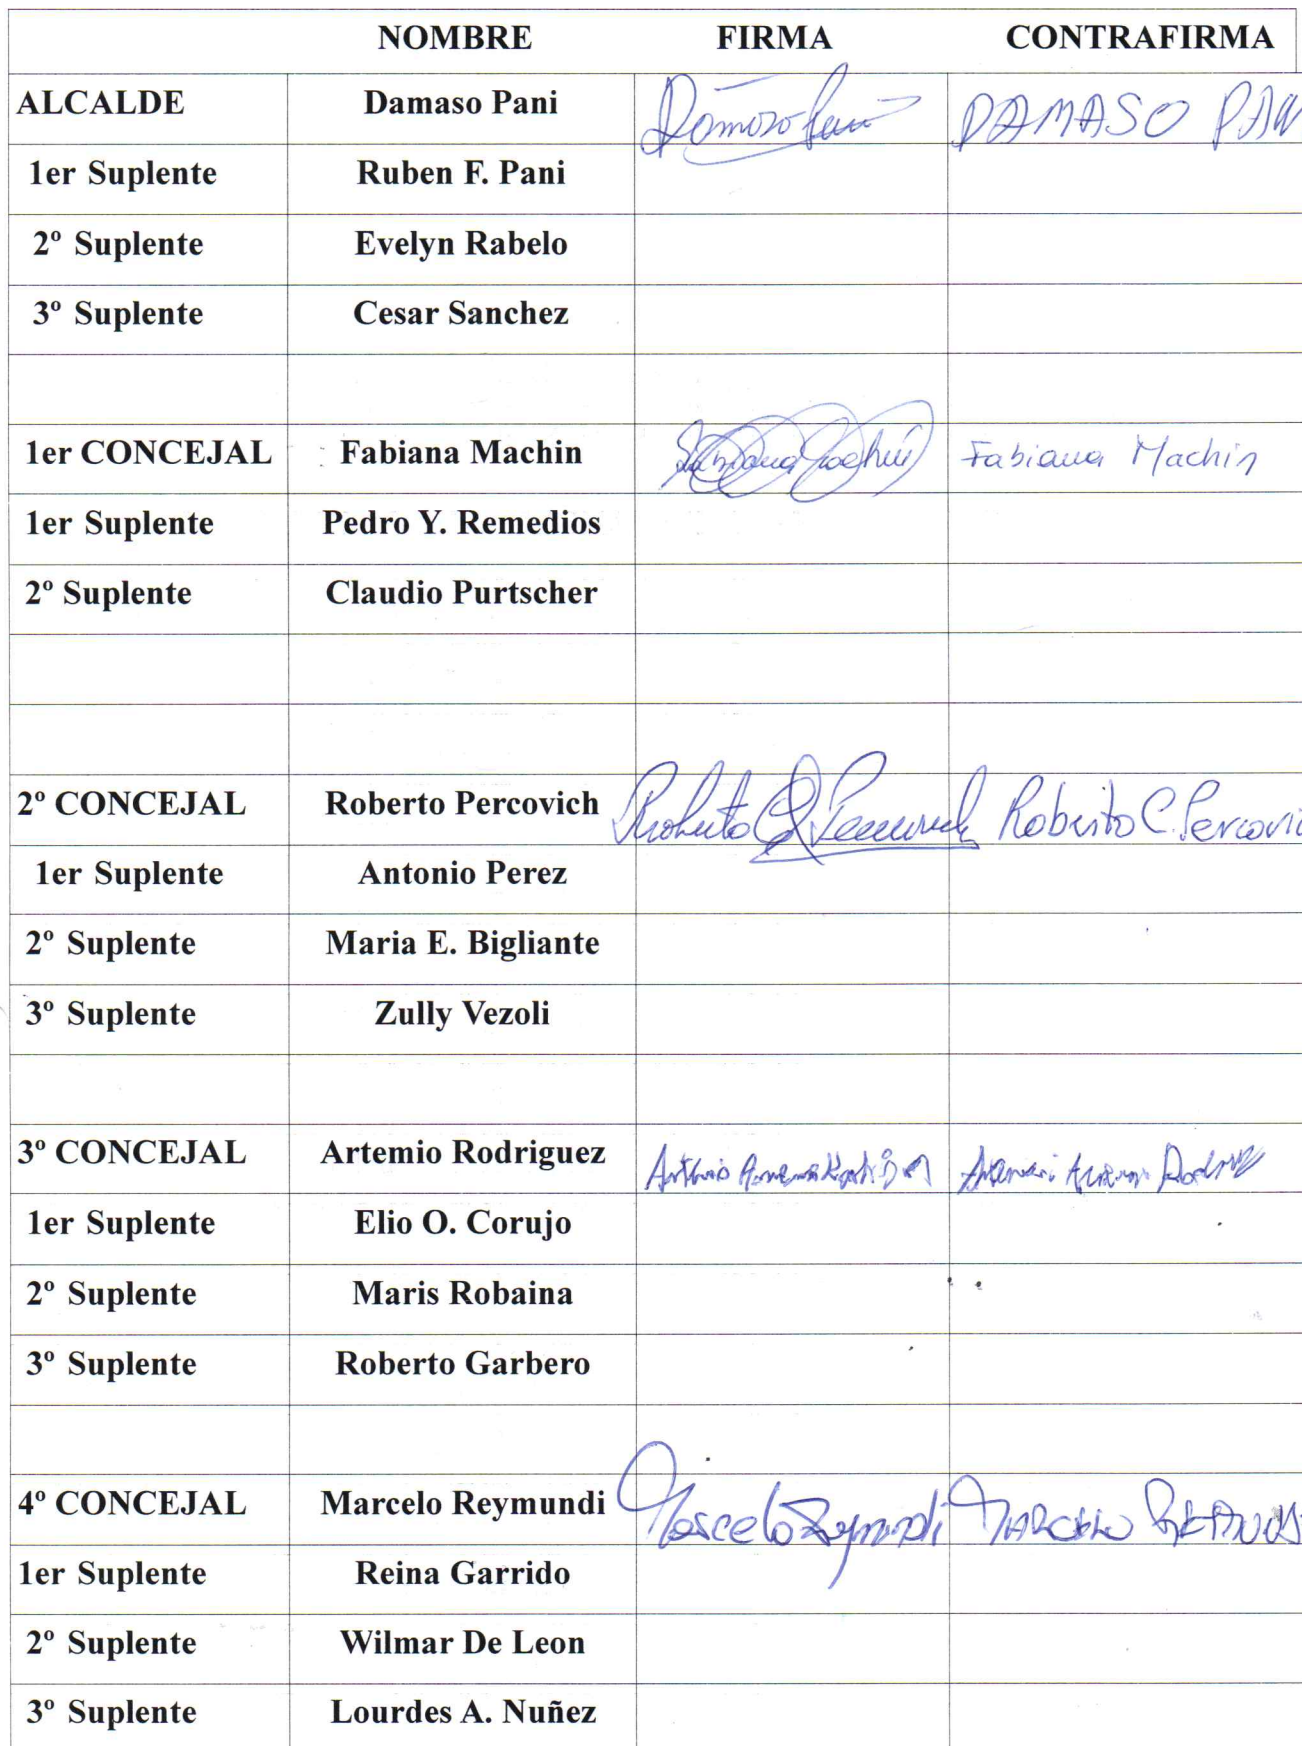 NOMBRE FIRMA CONTRAFIRMA
ALCALDE Damaso Pani Damaso Pani DAMASO PANI
1er Suplente Ruben F. Pani
2º Suplente Evelyn Rabelo
3º Suplente Cesar Sanchez
1er CONCEJAL Fabiana Machin Fabiana Machin Fabiana Machin
1er Suplente Pedro Y. Remedios
2º Suplente Claudio Purtscher
2º CONCEJAL Roberto Percovich Roberto C. Percovich Roberto C. Percovic
1er Suplente Antonio Perez
2º Suplente Maria E. Bigliante
3º Suplente Zully Vezoli
3º CONCEJAL Artemio Rodriguez
1er Suplente Elio O. Corujo
2º Suplente Maris Robaina
3º Suplente Roberto Garbero
4º CONCEJAL Marcelo Reymundi Marcelo Reymundi MARCELO
1er Suplente Reina Garrido
2º Suplente Wilmar De Leon
3º Suplente Lourdes A. Nuñez